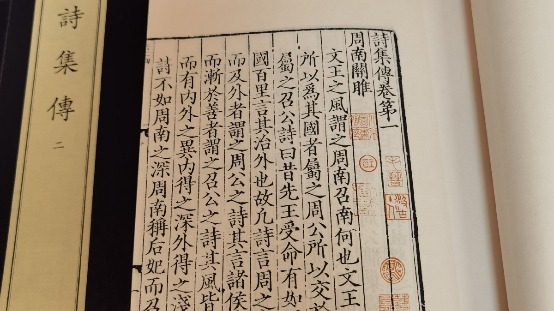 詩集傳 二
詩集傳卷第一
周南關雎
文王之風謂之周南召南何也文王
所以爲其國者屬之周公所以交者
屬之召公詩曰昔先王受命有如
國百里言其治外也故凡詩言周之
而及外者謂之周公之詩其言諸侯
而漸於善者謂之召公之詩其風皆
而有内外之異内得之深外得之淺
詩不如周南之深周南稱后妃而召